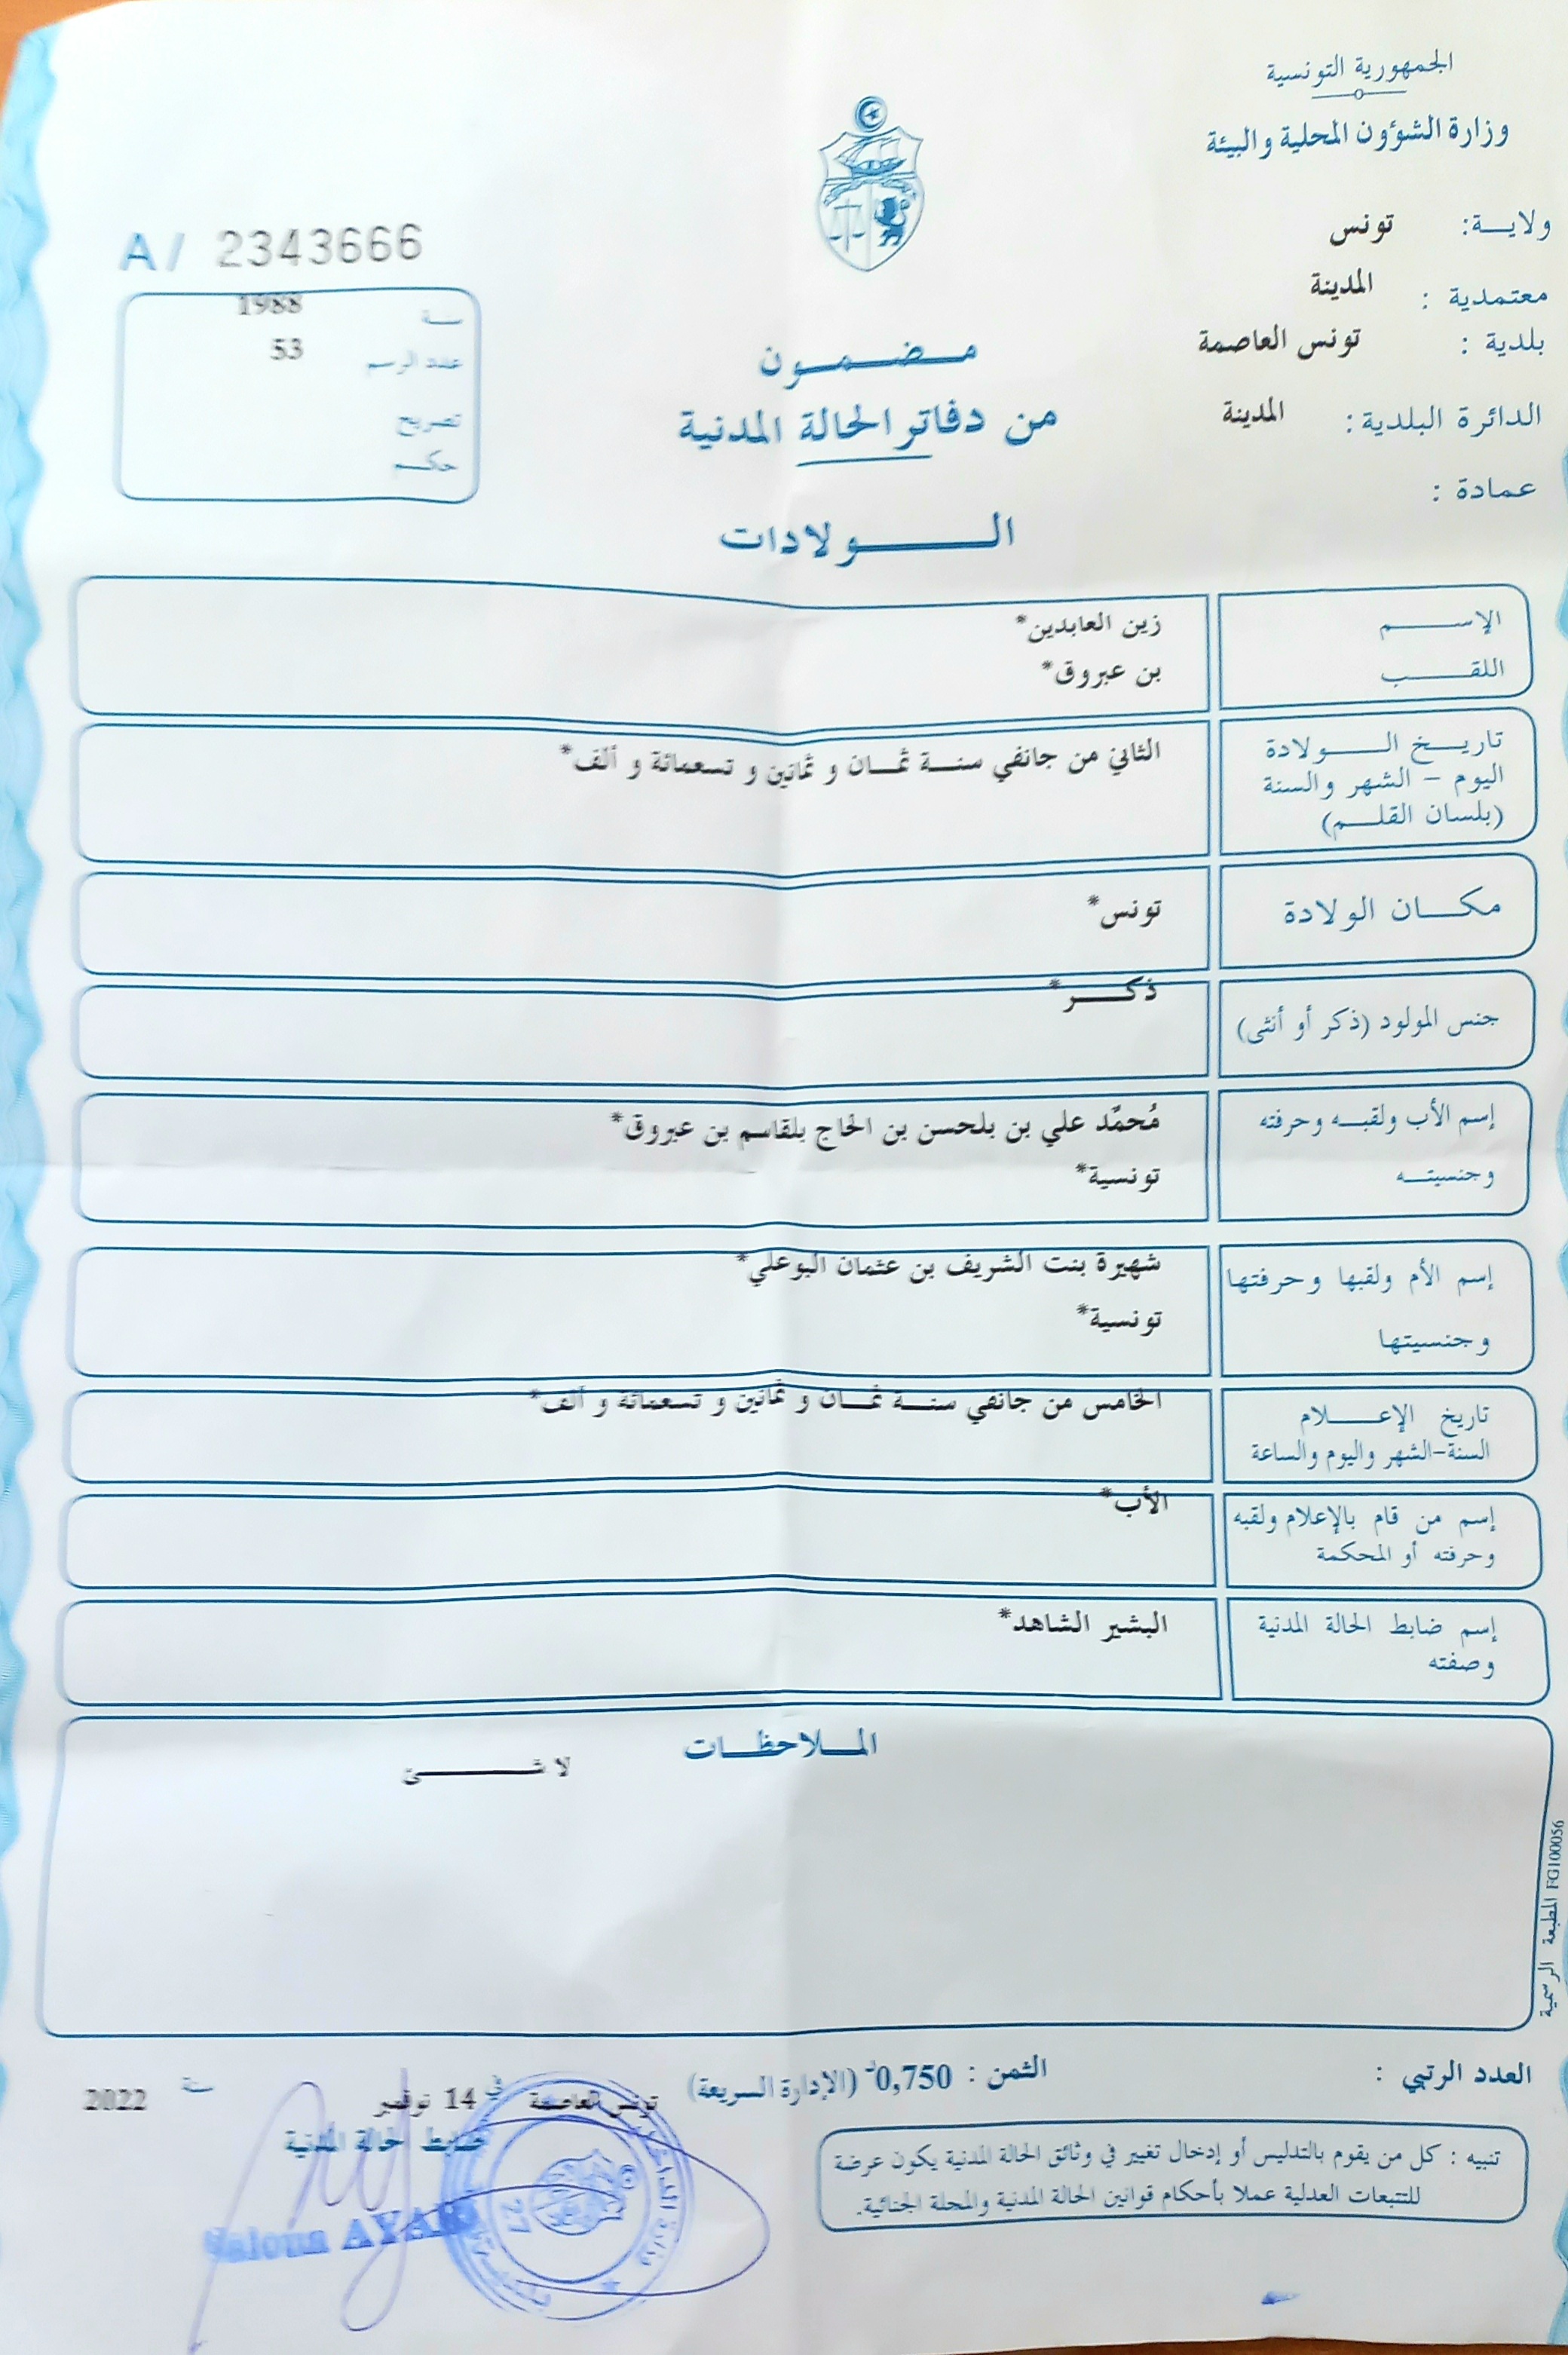 الجمهورية التونسية
وزارة الشؤون المحلية والبيئة
ولاية: تونس
معتمدية : المدينة
بلدية : تونس العاصمة
الدائرة البلدية: المدينة
عمادة :
A/ 2343666
سنة 1988
عدد الرسم 53
تصريح
حكم
مضمون
من دفاتر الحالة المدنية
الولادات
الإسم زين العابدين*
اللقب بن عبروق*
تاريخ الولادة
اليوم – الشهر والسنة
(بلسان القلم)
الثاني من جانفي سنة ثمان و ثمانين و تسعمائة و ألف*
مكان الولادة تونس*
جنس المولود (ذكر أو أنثى) ذكر*
إسم الأب ولقبه وحرفته مُحمّد علي بن بلحسن بن الحاج بلقاسم بن عبروق*
وجنسيته تونسية*
إسم الأم ولقبها وحرفتها شهيرة بنت الشريف بن عثمان البوعلي*
وجنسيتها تونسية*
تاريخ الإعلام الخامس من جانفي سنة ثمان و ثمانين و تسعمائة و ألف*
السنة-الشهر واليوم والساعة
إسم من قام بالإعلام ولقبه الأب*
وحرفته أو المحكمة
إسم ضابط الحالة المدنية البشير الشاهد*
وصفته
الملاحظات
لا شئ
المطبعة الرسمية FG100056
العدد الرتبي :
الثمن : 0,750د (الإدارة السريعة)
تونس العاصمة في 14 نوفمبر سنة 2022
ضابط الحالة المدنية
تنبيه : كل من يقوم بالتدليس أو إدخال تغيير في وثائق الحالة المدنية يكون عرضة
للتتبعات العدلية عملا بأحكام قوانين الحالة المدنية والمجلة الجنائية.
27